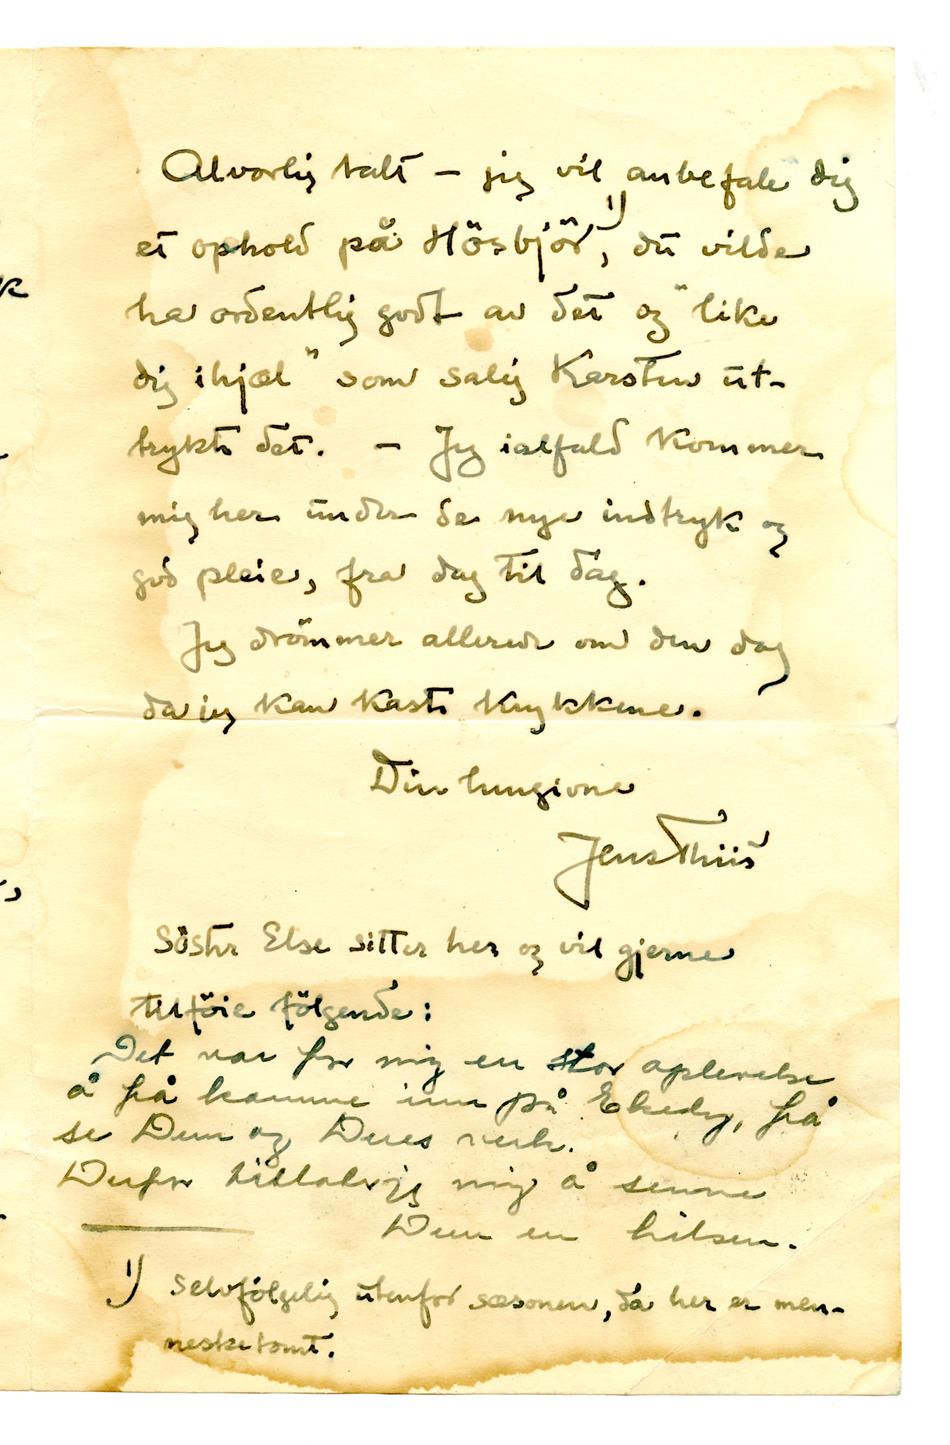 Alvorlig talt – jeg vil anbefale dig
et ophold på Hösbjör¹⁾, du vilde
ha ordentlig godt av det og "like
dig ihjæl" som salig Karsten ut-
trykte det. – Jeg ialfald kommer
mig her under de nye indtryk og
god pleie, fra dag til dag.
Jeg drömmer allerede om den dag
da jeg kan kaste krykkene.
Din hengivne
Jens Thiis
Söster Else sitter her og vil gjerne
tilföie fölgende:
Det var for mig en stor oplevelse
å få komme inn på Ekely, få
se Dem og Deres verk.
Derfor tillater jeg mig å senne
Dem en hilsen.
1) Selvfölgelig utenfor sæsonen, da her er men-
nesketomt.